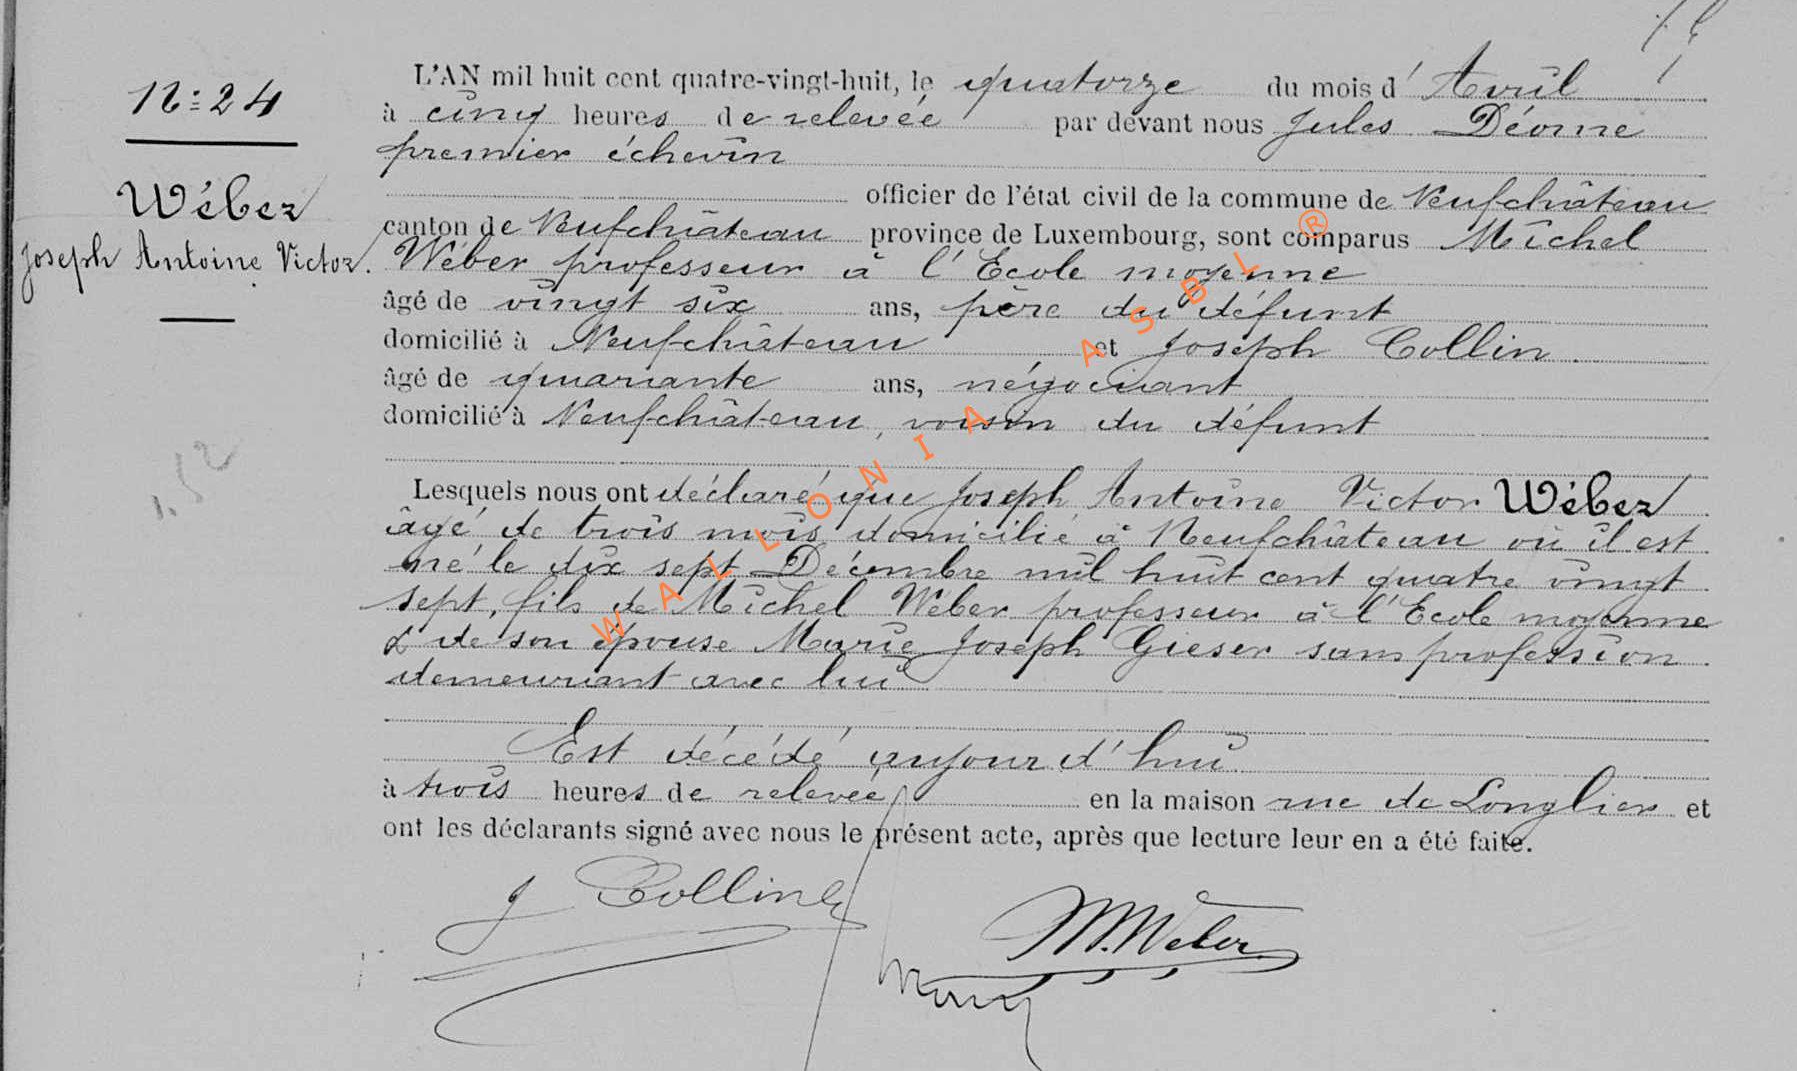 N: 24
Wéber
Joseph Antoine Victor.
L'AN mil huit cent quatre-vingt-huit, le quatorze du mois d' Avril
à cinq heures de relevée par devant nous Jules Déome
premier échevin
officier de l'état civil de la commune de Neufchâteau
canton de Neufchâteau province de Luxembourg, sont comparus Michel
Wéber professeur à l'Ecole moyenne
âgé de vingt six ans, père du défunt
domicilié à Neufchâteau et Joseph Collin.
âgé de quarante ans, négociant
domicilié à Neufchâteau, voisin du défunt
Lesquels nous ont déclaré que Joseph Antoine Victor Wéber
âgé de trois mois domicilié à Neufchâteau où il est
né le dix sept Décembre mil huit cent quatre vingt
sept, fils de Michel Weber professeur à l'Ecole moyenne
& de son épouse Marie Joseph Gieser sans profession
demeurant avec lui
Est décédé aujourd'hui
à trois heures de relevée en la maison rue de Longlier et
ont les déclarants signé avec nous le présent acte, après que lecture leur en a été faite.
J Collin
M. Weber
WALLONIA ASBL ®
1.52